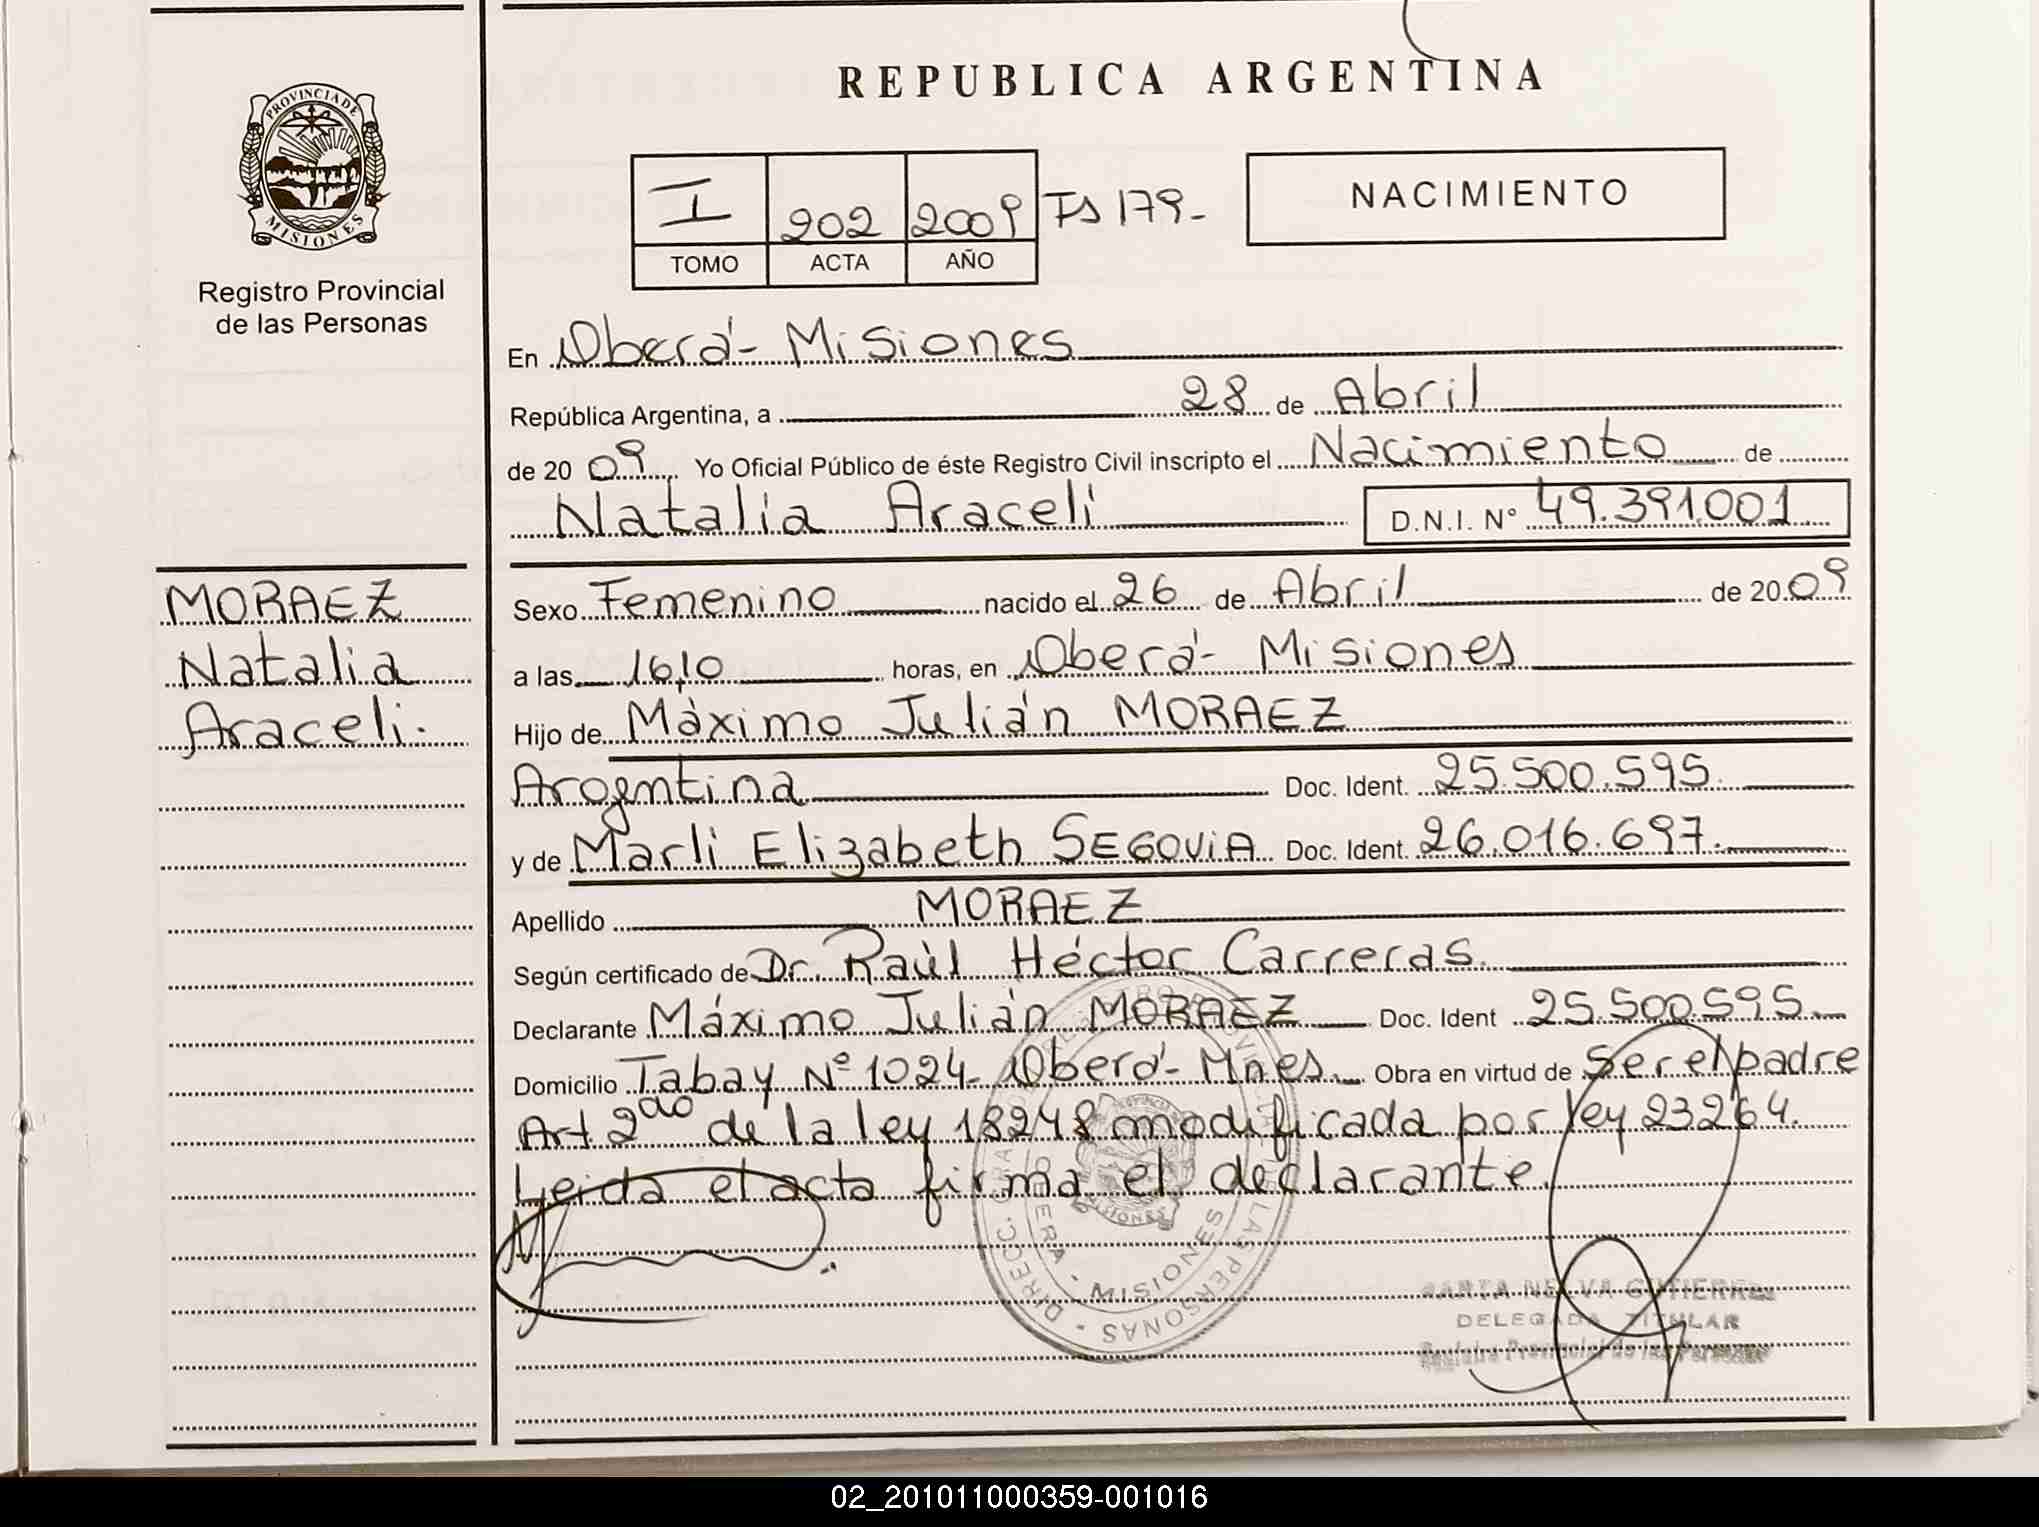 REPUBLICA ARGENTINA
PROVINCIA DE
MISIONES
Registro Provincial
de las Personas
I 202 2009 Fs 179-
TOMO ACTA AÑO
NACIMIENTO
En Oberá - Misiones
República Argentina, a 28 de Abril
de 20 09 Yo Oficial Público de éste Registro Civil inscripto el Nacimiento de
Natalia Araceli D.N.I. N° 49.391.001
MORAEZ
Natalia
Araceli.
Sexo Femenino nacido el 26 de Abril de 20 09
a las 16,10 horas, en Oberá - Misiones
Hijo de Máximo Julián MORAEZ
Argentina Doc. Ident. 25.500.595.
y de Marli Elizabeth SEGOVIA Doc. Ident. 26.016.697.
Apellido MORAEZ
Según certificado de Dr. Raúl Héctor Carreras.
Declarante Máximo Julián MORAEZ Doc. Ident 25.500.595.
Domicilio Tabay Nº 1024 - Oberá - Mnes. Obra en virtud de Ser el padre
Art 2do de la ley 18248 modificada por ley 23264.
Leida el acta firma el declarante.
MISIONES
DELEGADA TITULAR
Registro Provincial de las Personas
02_201011000359-001016